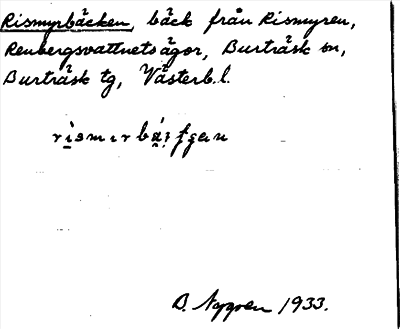 Rismyrbäcken, bäck från Rismyren,
Renbergsvattnets ägor, Burträsk sn,
Burträsk tg, Västerb. l.
D. Nygren 1933.